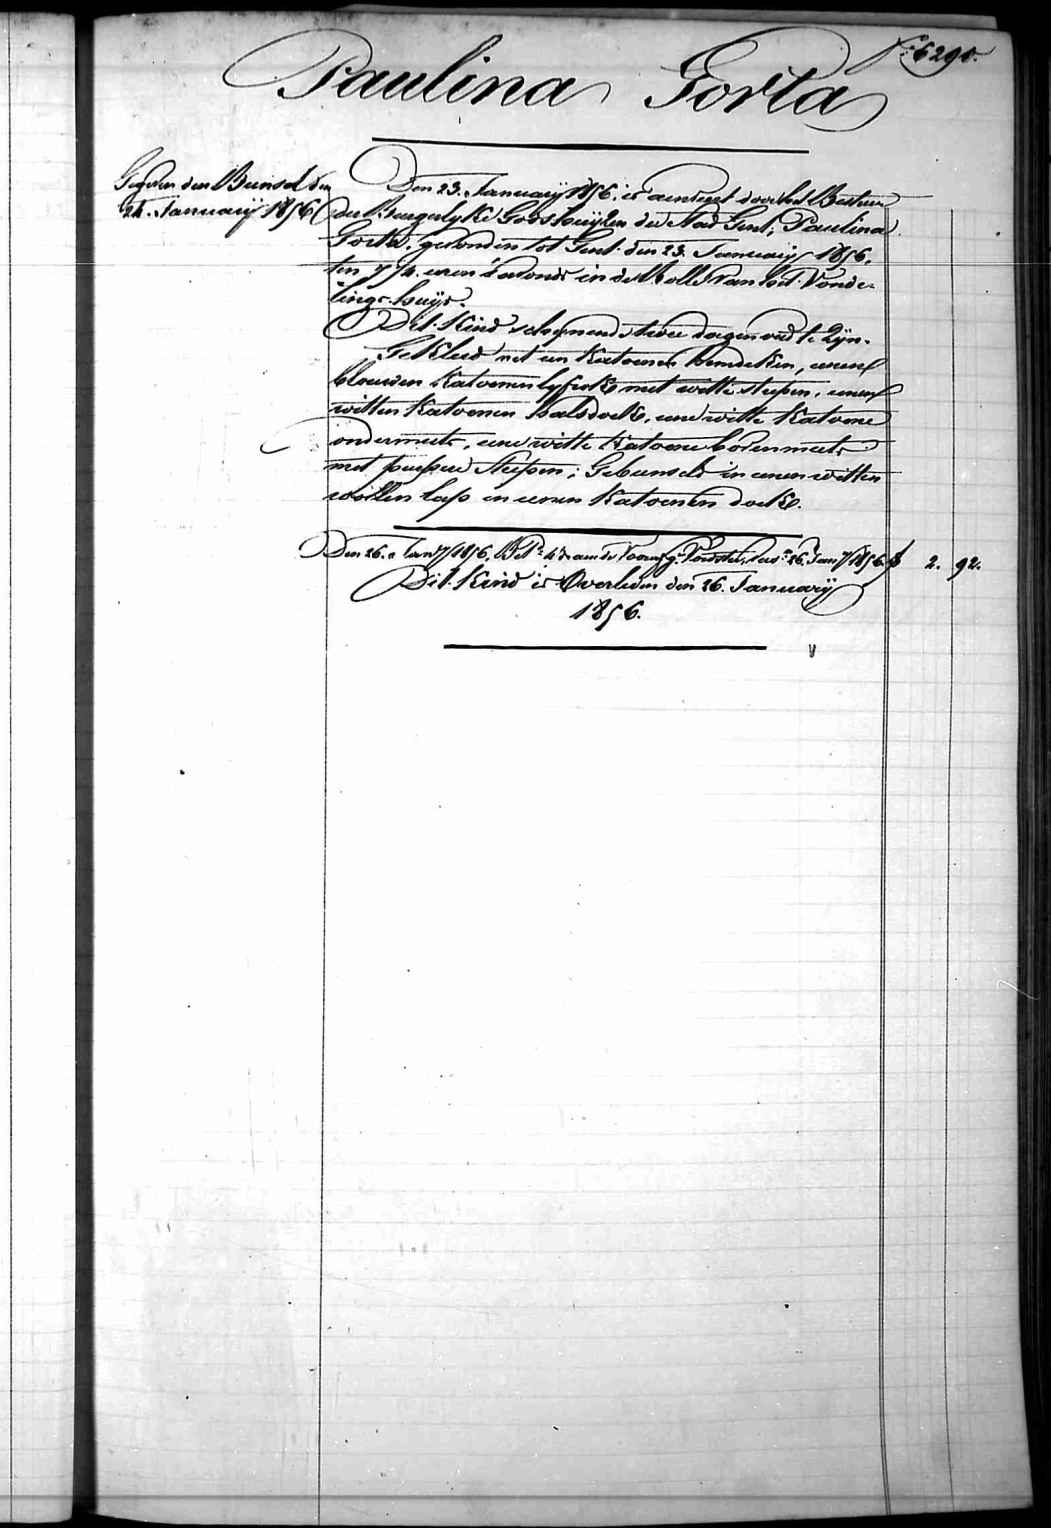 N.º 6290.
Paulina Gorta
Gegeven den Bunsel den
24. Januarÿ 1856
Den 23. Januarÿ 1856. is aenveert door het Bestuer
der Burgerlyke Godshuÿzen der Stad Gent, Paulina
Gorta. gevonden tot Gent. den 23. Januarÿ 1856.
ten 7 3/4. uren 's avonds in de Rolle van het Vonde-
lings-huÿs.
Dit Kind schynende twee dagen oud te zÿn.
Gekleed met een Katoenen hemdeken, eenen
blauwen Katoenen lyfrok met witte streepen, eenen
witten Katoenen halsdoek, eene witte Katoene
ondermuts, eene witte Katoene bovenmuts
met streepen; Gebunseld in eenen witten
wollen lap en eenen Katoenen doek.
Den 26. Janÿ 1856. Bet. aen de 26. Janÿ 1856. 2. 92.
Dit Kind is Overleden den 26. Januarÿ
1856.